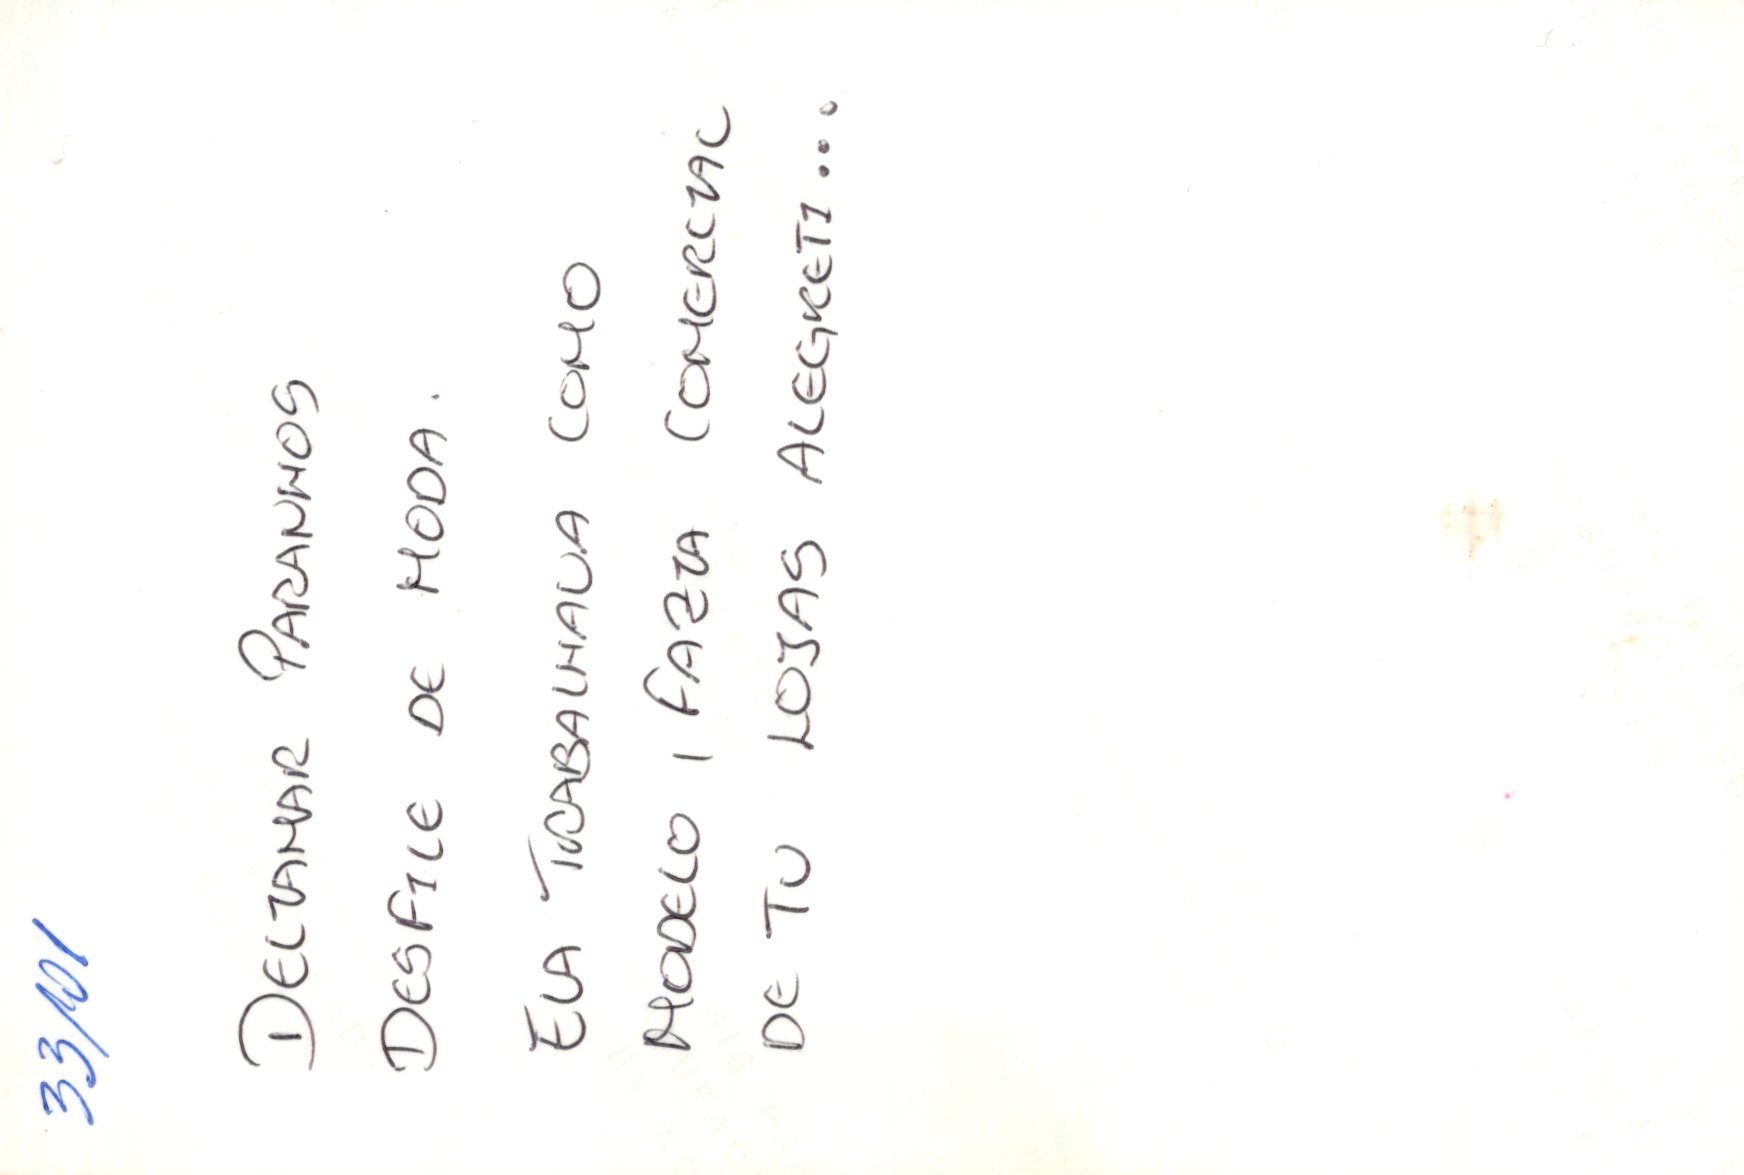 33/101
DELIAMAR PARANHOS
DESFILE DE MODA.
ELA TRABALHAVA COMO
MODELO I FAZIA COMERCIAL
DE TV LOJAS ALEGRETI...